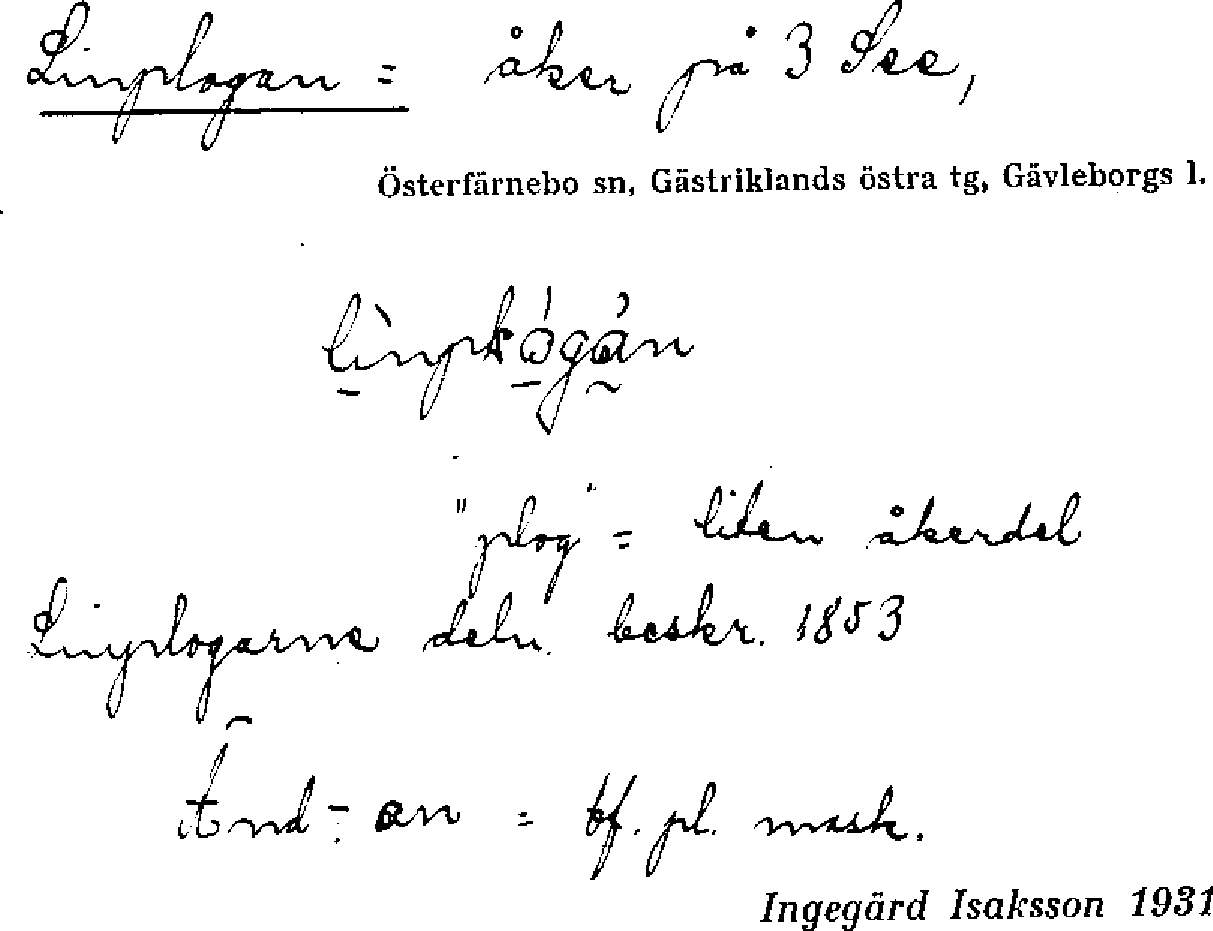 Linplogan = åker på 3 See,
Österfärnebo sn, Gästriklands östra tg, Gävleborgs l.
"plog" = liten åkerdel
Linplogarne deln. beskr. 1853
Änd - an = bf. pl. mask.
Ingegärd Isaksson 1931